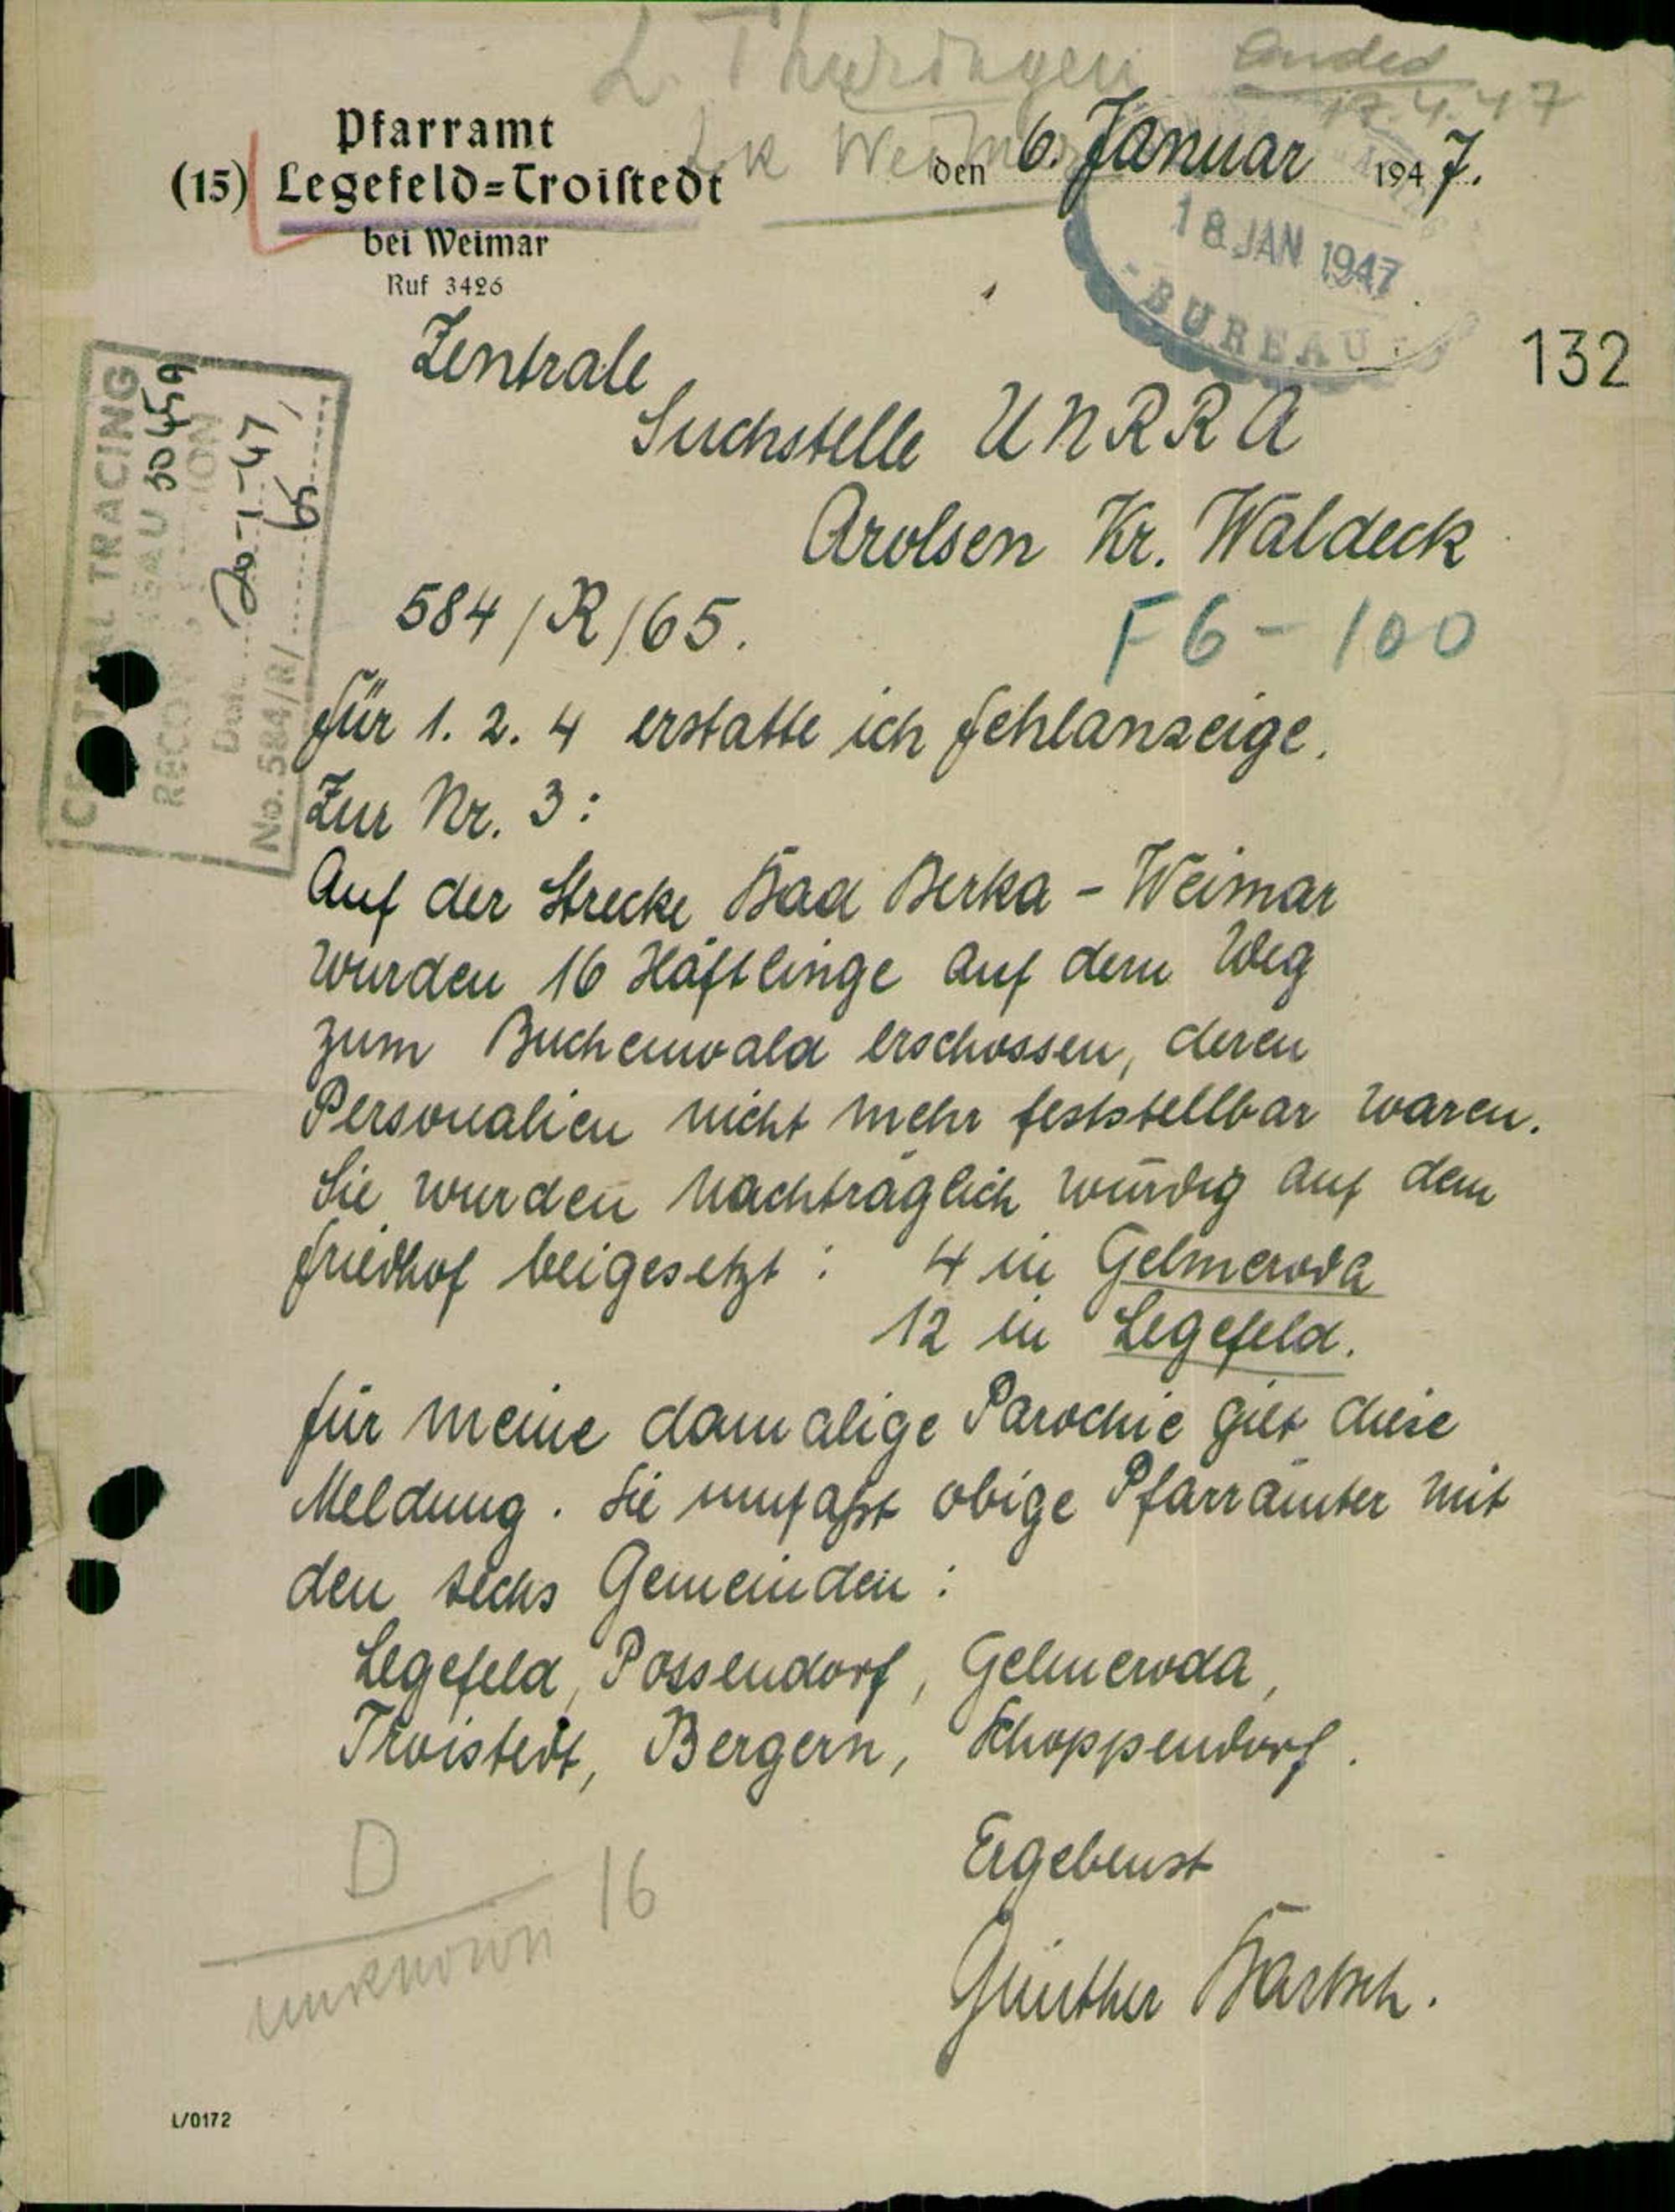 L. Thüringen
Lk Weimar
17.4.47
Pfarramt
(15) Legefeld=Troistedt
bei Weimar
Ruf 3426
den 6. Januar 1947.
18 JAN 1947
BUREAU
132
CENTRAL TRACING
BUREAU 30459
Date 20-1-47
No. 584/R/ 65
Zentrale
Suchstelle UNRRA
Arolsen Kr. Waldeck
584/R/65.
F6-100
Für 1. 2. 4 erstatte ich Fehlanzeige.
Zur Nr. 3:
Auf der Strecke Bad Berka - Weimar
wurden 16 Häftlinge auf dem Weg
zum Buchenwald erschossen, deren
Personalien nicht mehr feststellbar waren.
Sie wurden nachträglich würdig auf dem
Friedhof beigesetzt: 4 in Gelmeroda
12 in Legefeld.
Für meine damalige Parochie gilt diese
Meldung. Sie umfaßt obige Pfarrämter mit
den sechs Gemeinden:
Legefeld, Possendorf, Gelmeroda,
Troistedt, Bergern, Schoppendorf.
Ergebenst
Günther Bartsch.
D
16
unknown
L/0172